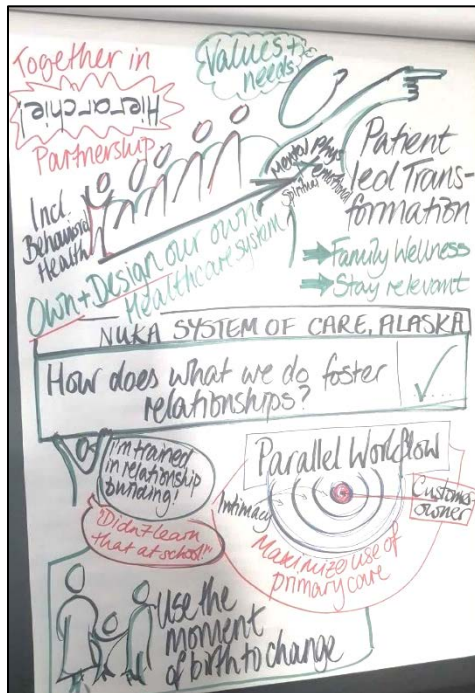 Together in
Hierarchie!
Partnership
Values +
needs
Incl.
Behavioral
Health
Mental Phys
Spiritual emotional
Patient
led Trans-
formation
Family Wellness
Stay relevant
Own + Design our own
Healthcare system
NUKA SYSTEM OF CARE, ALASKA
How does what we do foster
relationships?
I'm trained
in relationship
building!
"Didn't learn
that at school!"
Parallel Workflow
Intimacy
Customer-
owner
Maximize use of
primary care
Use the
moment
of birth to change